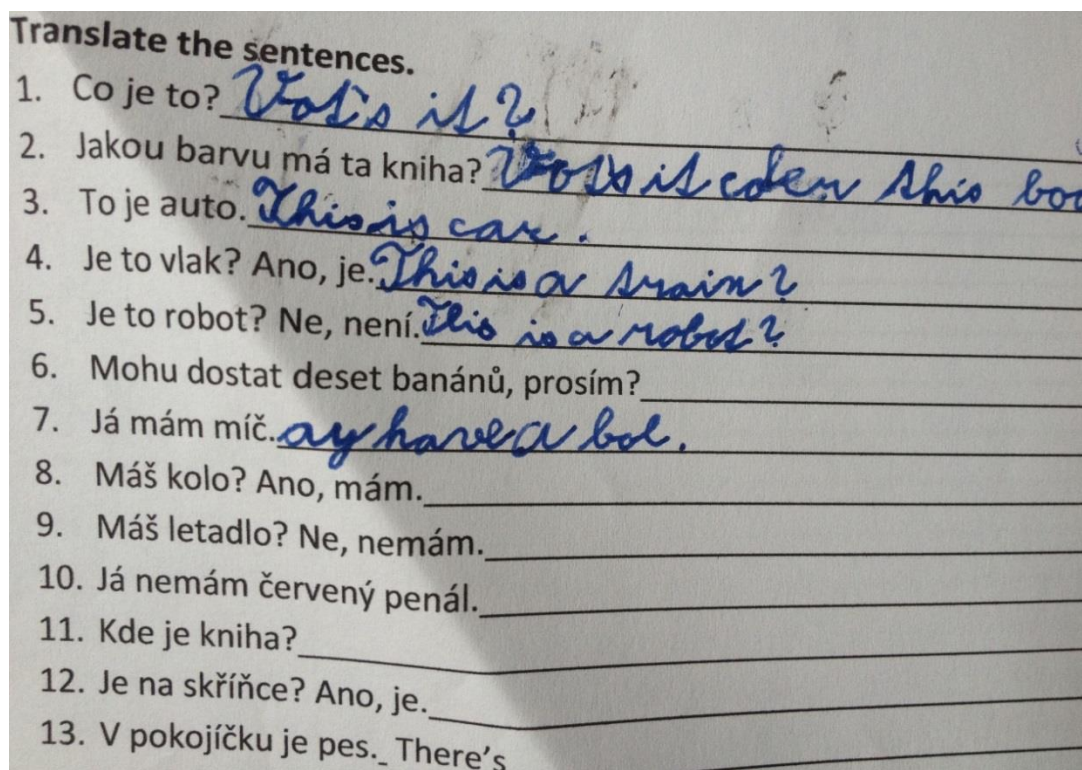 Translate the sentences.
1. Co je to? Vot's it?
2. Jakou barvu má ta kniha? Vots it coler this boo
3. To je auto. This is car.
4. Je to vlak? Ano, je. This is a train?
5. Je to robot? Ne, není. This is a robot?
6. Mohu dostat deset banánů, prosím?
7. Já mám míč. ay have a bol.
8. Máš kolo? Ano, mám.
9. Máš letadlo? Ne, nemám.
10. Já nemám červený penál.
11. Kde je kniha?
12. Je na skříňce? Ano, je.
13. V pokojíčku je pes. There's